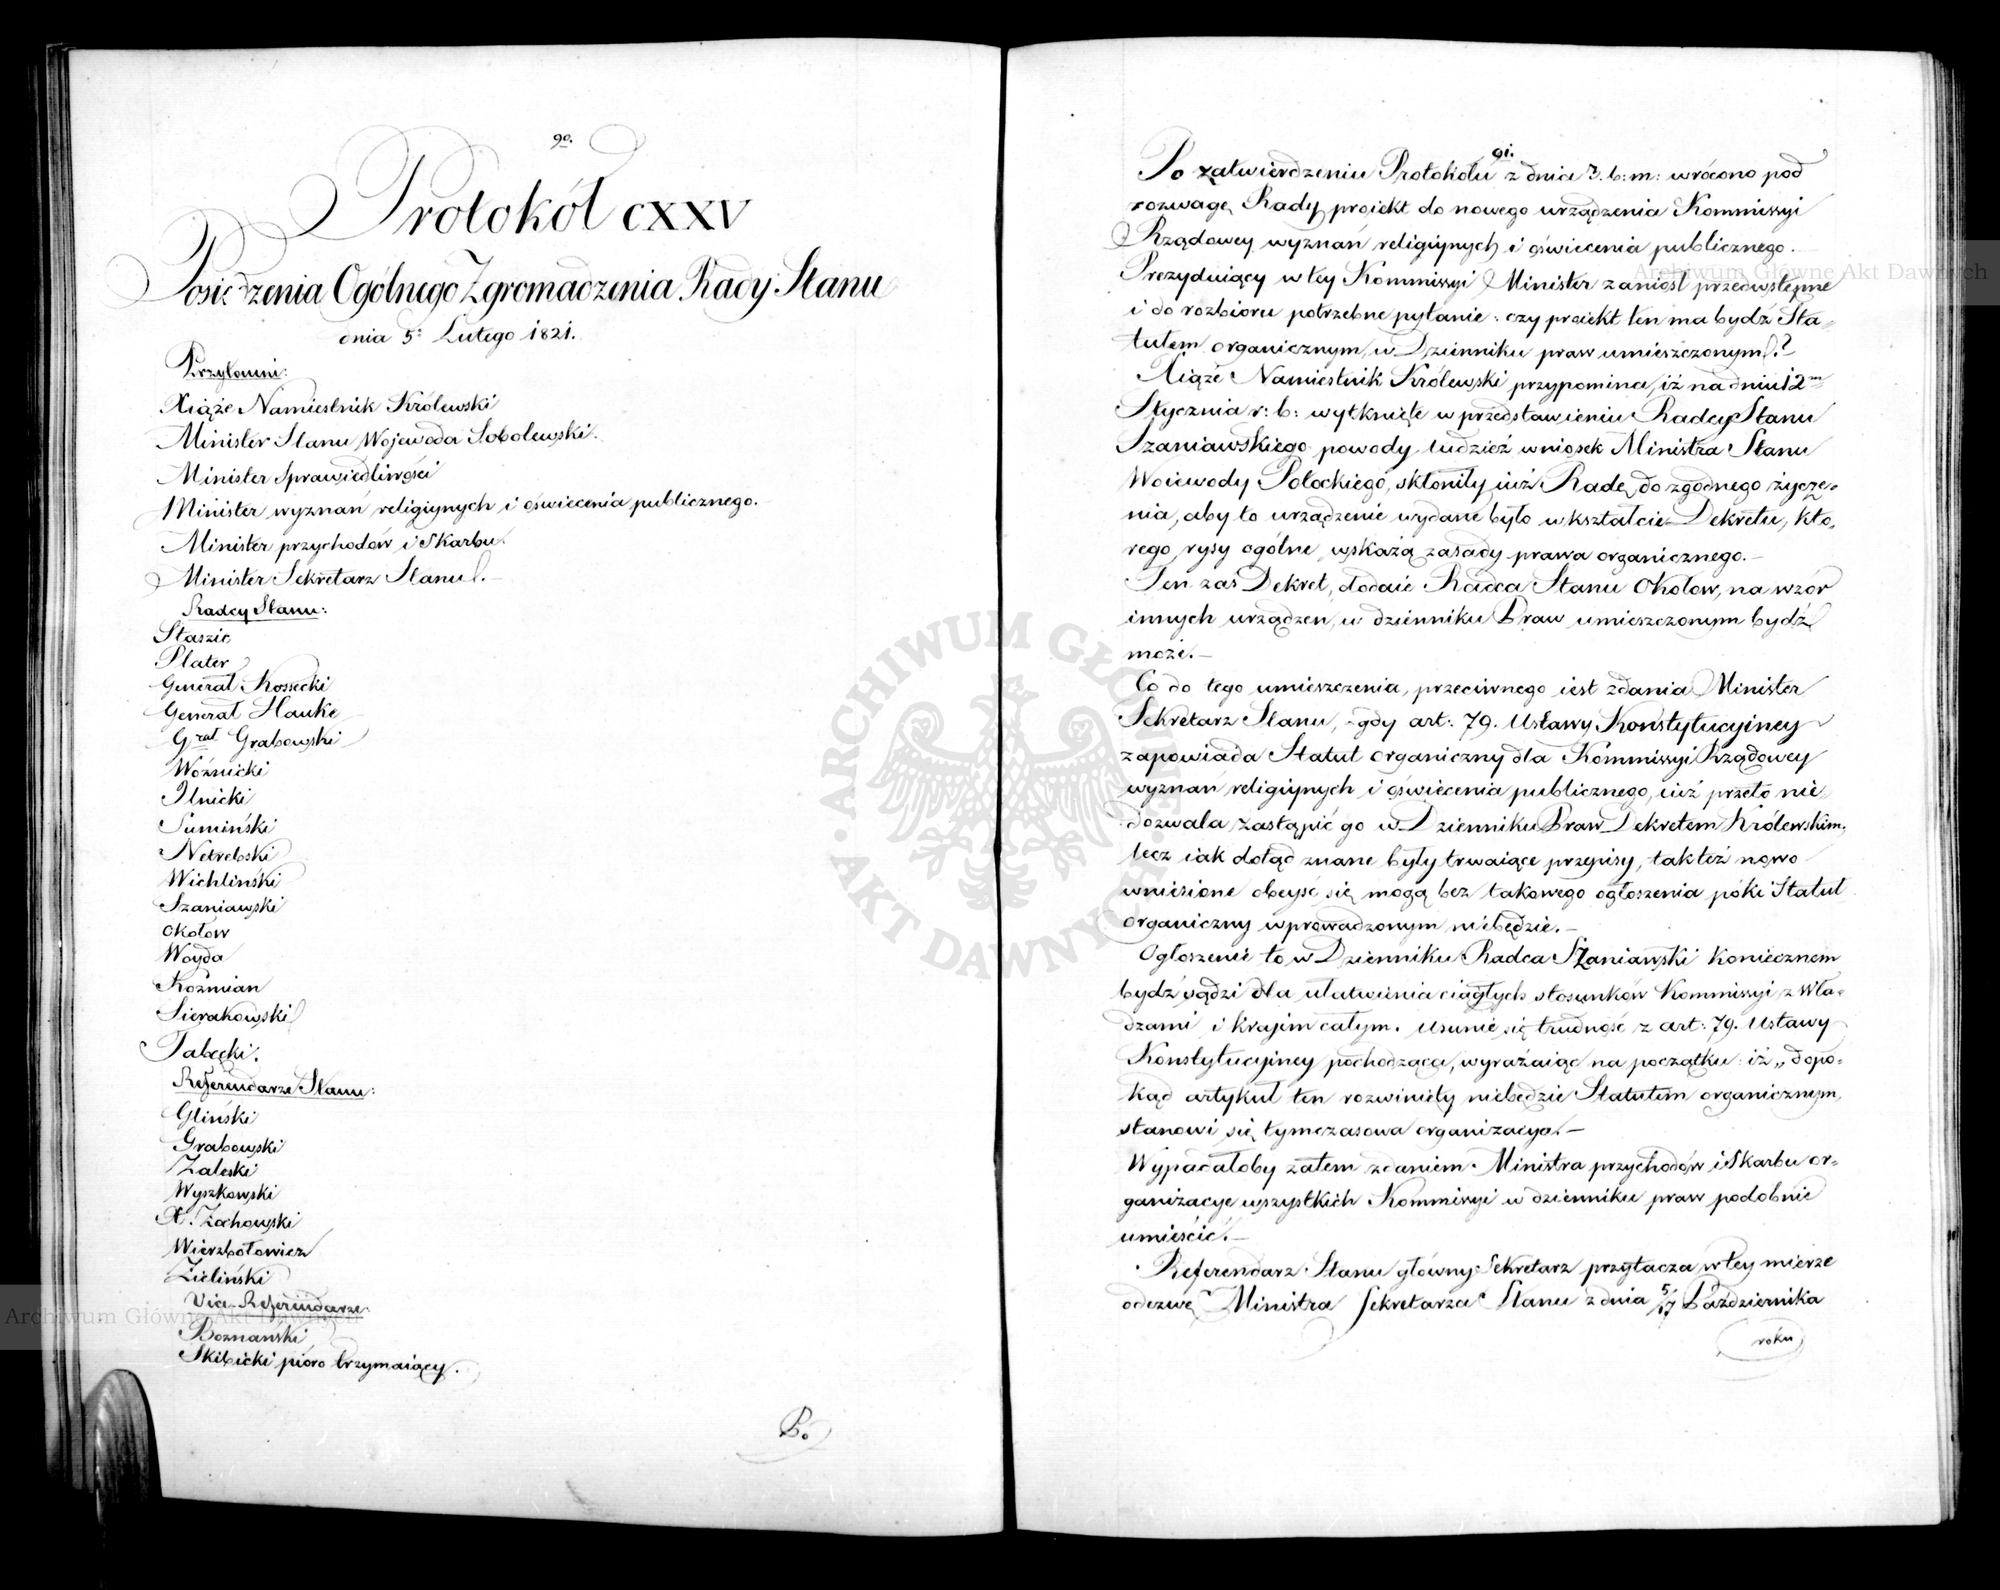 90.
Protokół CXXV
Posiedzenia Ogólnego Zgromadzenia Rady Stanu
dnia 5º Lutego 1821.
Przytomni:
Xiąże Namiestnik Królewski
Minister Stanu Wojewoda Sobolewski.
Minister Sprawiedliwości
Minister wyznań religiynych i oświecenia publicznego.
Minister przychodów i Skarbu.
Minister Sekretarz Stanu.—
Radcy Stanu:
Staszic
Plater
Generał Kossecki
Generał Hauke
Grał Grabowski
Woźnicki
Ilnicki
Sumiński
Netrebski
Wichliński
Szaniawski
Okołow
Woyda
Koźmian
Sierakowski
Tabęcki.
Referendarze Stanu:
Gliński
Grabowski
Zaleski
Wyszkowski
X. Żochowski
Wierzbołowicz
Zieliński
Vice-Referendarze
Boznański
Skibicki pióro trzymaiący.
Po
91.
Po zatwierdzeniu Protokółu z dnia 3. b: m: wrócono pod
rozwagę Rady proiekt do nowego urządzenia Kommissyi
Rządowey wyznań religiynych i oświecenia publicznego.
Prezyduiący w tey Kommissyi Minister zaniosł przedwstępne
i do rozbioru potrzebne pytanie: czy proiekt ten ma bydź Sta=
tutem organicznym, w Dzienniku praw umieszczonym.?
Xiąże Namiestnik Królewski przypomina, iż na dniu 12m
Stycznia r: b: wytknięte w przedstawieniu Radcy Stanu
Szaniawskiego powody, tudzież wniosek Ministra Stanu
Woiewody Potockiego, skłoniły iuż Radę do zgodnego życze=
nia, aby to urządzenie wydane było w kształcie Dekretu, któ=
rego rysy ogólne, wskażą zasady prawa organicznego.—
Ten zaś Dekret, dodaie Radca Stanu Okołow, na wzór
innych urządzeń, w dzienniku Praw umieszczonym bydź
może.—
Co do tego umieszczenia, przeciwnego iest zdania Minister
Sekretarz Stanu, gdy art: 79. Ustawy Konstytucyiney
zapowiada Statut organiczny dla Kommissyi Rządowey
wyznań religiynych i oświecenia publicznego, iuż przeto nie
dozwala zastąpić go w Dzienniku Praw Dekretem Królewskim,
lecz iak dotąd znane były trwaiące przepisy, takteż nowo
wniesione obeyść się mogą bez takowego ogłoszenia póki Statut
organiczny wprowadzonym niebędzie.—
Ogłoszenie to w Dzienniku Radca Szaniawski koniecznem
bydź sądzi dla ułatwienia ciągłych stosunków Kommissyi z Wła=
dzami i krajem całym. Usunie się trudność z art: 79. Ustawy
Konstytucyiney pochodząca, wyrażaiąc na początku: iż „dopo=
kąd artykuł ten rozwinięty niebędzie Statutem organicznym,
stanowi się tymczasowa organizacya.—
Wypadałoby zatem zdaniem Ministra przychodów i Skarbu or=
ganizacye wszystkich Kommissyi w dzienniku praw podobnie
umieścić.—
Referendarz Stanu główny Sekretarz przytacza w tey mierze
odezwę Ministra Sekretarza Stanu z dnia 5/17 Października
roku
Archiwum Główne Akt Dawnych
Archiwum Główne Akt Dawnych
ARCHIWUM GŁÓWNE · AKT DAWNYCH